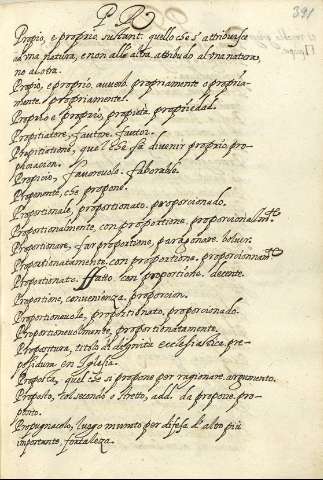 P R
391
Propio, e proprio sustant: quello che s'attribuisce
ad una natura, e non alle altre. attribuido al una natura,
no al otra.
Propio, e proprio, auuerb. propriamente o propria-
mente. propriamente.
Proprio e proprio, propietà. propriedad.
Propitiatore, fautore. fautor.
Propitiatione, quel che fa divenir proprio pro-
piciacion.
Propicio, fauoreuole. faborable.
Proponente, che propone.
Proportionale, proportionato. proporcionado.
Proportionalmente, con proportione. proporcionalmte
Proportionare, far proportione, paragonare.
Proportionatamente. con proportione. proporcionamte
Proportionato. fatto con proportione. decente.
Proportione, conuenienza. proporcion.
Proportioneuole, proportionato, proporcionado.
Proportioneuolmente, proportionatamente.
Propositura, titolo di dignità ecclesiastica pre-
positura en Iglesia.
Proposta, quel che si propone per ragionare. argumento.
Proposto, tol secondo o stretto, add. da proporre. pro-
puesto.
Propugnacolo, luogo munito per difesa d'altro più
importante, fortaleza.